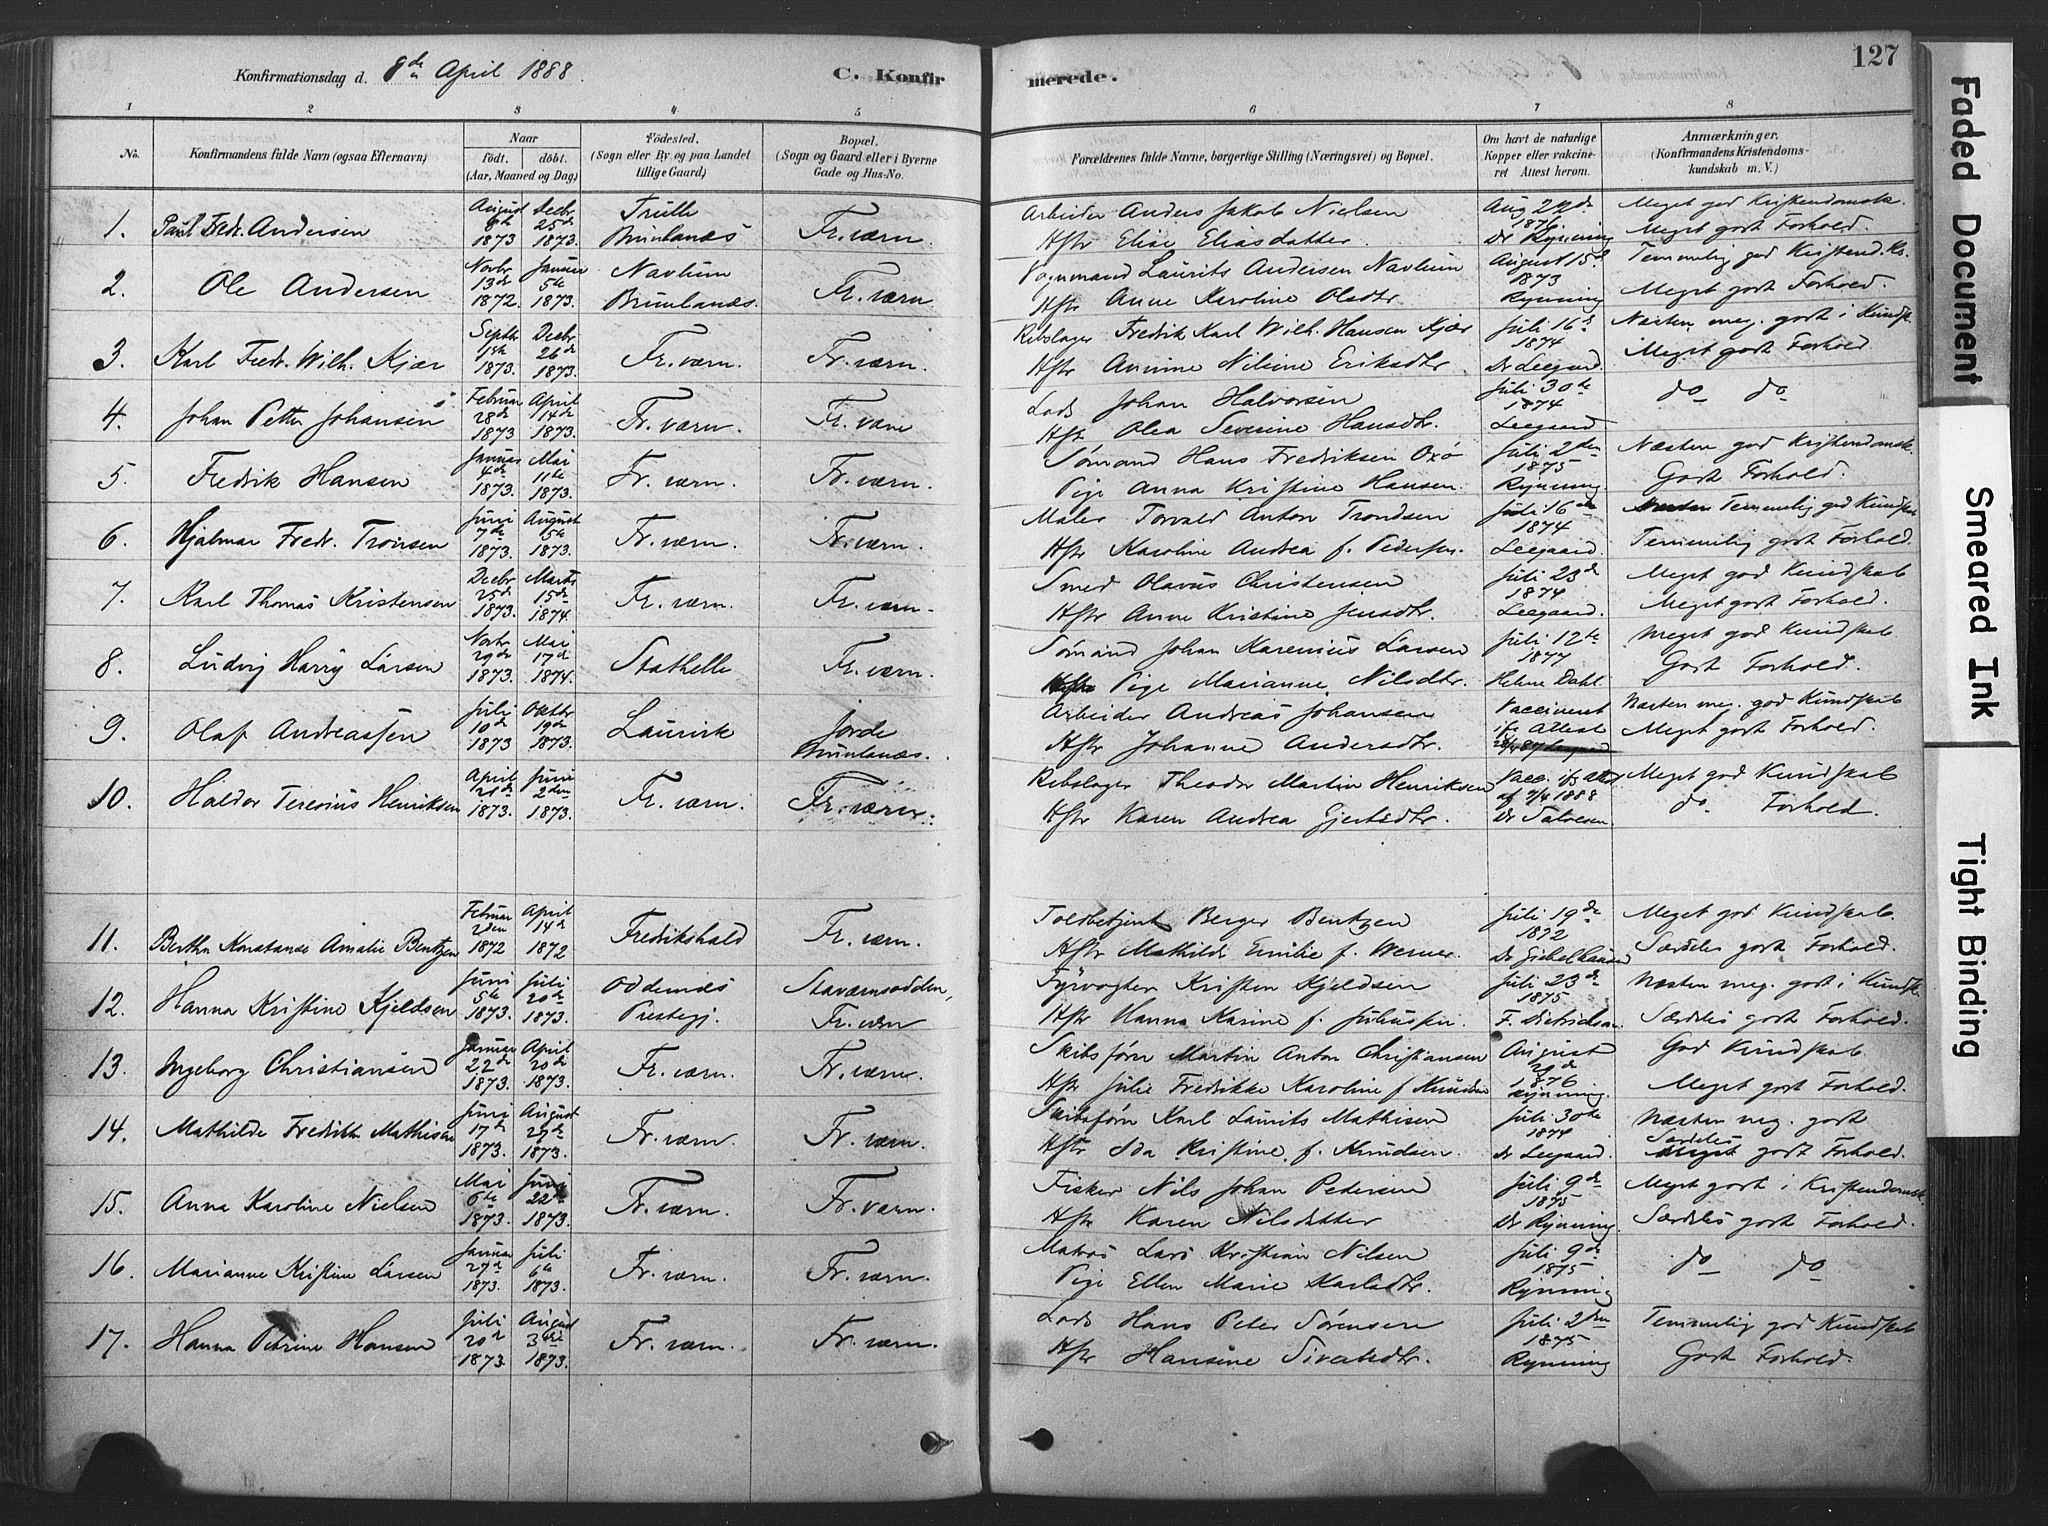 127
Konfirmationsdag d. 8de April 1888. C. Konfirmerede.
1 2 3 4 5 6 7 8
No.
Konfirmandens fulde Navn (ogsaa Efternavn)
Naar
födt. döbt.
(Aar, Maaned og Dag)
Födested.
(Sogn eller By, og paa Landet
tillige Gaard)
Bopæl.
(Sogn og Gaard eller i Byerne
Gade og Hus-No.
Forældrenes fulde Navne, borgerlige Stilling (Næringsvei) og Bopæl.
Om havt de naturlige
Kopper eller vakcine-
ret Attest herom.
Anmærkninger.
(Konfirmandens Kristendoms-
kundskab m. V.)
1. Paul Fredr. Andersen
August 8de 1873 Decbr 25de 1873.
Brunlanæs
Fr. værn.
Arbeider Anders Jakob Nielsen
Hstr Elise Eliasdatter.
Aug 22de 1876 Dr Rynning
Meget god Kristendomsk.
Meget godt Forhold.
2. Ole Andersen
Novbr 13de 1872. Januar 5te 1873.
Navlum
Brunlanæs.
Fr. værn.
Vognmand Laurits Andersen Navlum
Hstr Anne Karoline Olsdtr.
August 15d. 1873 Rynning
Temmelig god Kristend. Ks.
Meget godt Forhold.
3. Karl Fredr. Wilh. Kjær
Septbr 1ste 1873. Decbr 26de 1873.
Fr. værn.
Fr. værn.
Rebslager Fredrik Karl Wilh. Hansen Kjær
Hstr Annine Nilsine Eriksdtr
Juli 16d 1874 Dr Leegaard
Næsten meg. godt i Kundsk.
Meget godt Forhold
4. Johan Petter Johansen
Februar 28de 1873 April 14de 1873.
Fr. værn.
Fr. værn
Lods Johan Halvorsen
Hstr Olea Severine Hansdtr.
Juli 30te 1874 Leegaard
do do
5. Fredrik Hansen
Januar 4de 1873. Mai 11te 1873.
Fr. værn.
Fr. værn.
Sømand Hans Fredriksen Oxø
Pige Anna Kristine Hansen.
Juli 2den 1875 Rynning
Næsten god Kristendomsk.
Godt Forhold.
6. Hjalmar Fredr. Tronsen
Juni 7de 1873. August 15de 1873.
Fr. værn.
Fr. værn.
Maler Torvald Anton Trondsen
Hstr Karoline Andrea f. Pedersen.
Juli 16de 1874 Leegaard.
Temmelig god Kundskab
Temmelig godt Forhold.
7. Karl Thomas Kristensen
Decbr 25de 1873. Marts 15de 1874.
Fr. værn.
Fr. værn.
Smed Olavus Christensen
Hstr Anne Kristine Jensdtr.
Juli 23d 1874 Leegaard.
Meget god Kundskab
Meget godt Forhold.
8. Ludvig Harry Larsen
Novbr 29de 1873. Mai 17d 1874.
Stathelle
Fr. værn.
Sømand Johan Karenius Larsen
Pige Marianne Nilsdtr.
Juli 12te 1877 Helene Dahl.
Meget god Kundskab
Godt Forhold.
9. Olaf Andreassen
Juli 10de 1873 Oktbr 19de 1873.
Laurvik
Jorde
Brunlanæs.
Arbeider Andreas Johansen
Hstr Johanne Andersdtr.
Vaccineret ifø Attest
Næsten meg. god Kundskab
Meget godt Forhold.
10. Haldor Terenius Henriksen
April 21de 1873. Juni 2den 1873.
Fr. værn.
Fr. værn.
Rebslager Theodor Martin Henriksen
Hstr Karen Andrea Gjertsdtr.
Vacc. ifø Att. af 7/4 1888 Dr Salvesen
Meget god Kundskab
do. Forhold.
11. Bertha Konstanse Amalie Bentzen
Februar 2den 1872 April 14de 1872
Fredrikshald
Fr. værn.
Toldbetjent Berger Bentzen
Hstr Mathilde Emilie f. Werner.
Juli 19de 1872 Dr Giebelhausen
Meget god Kundskab.
Særdeles godt Forhold.
12. Hanna Kristine Kjeldsen
Juni 5te 1873. Juli 20de 1873.
Oddernæs
Prestegj.
Staværnsodden,
Fr. værn
Fyrvogter Kristen Kjeldsen
Hstr Hanna Karine f. Juliussen.
Juli 23de 1875 F. Dietrichson
Næsten meg. godt i Kundsk.
Særdeles godt Forhold.
13. Ingeborg Christiansen
Januar 22de 1873. April 20de 1873.
Fr. værn.
Fr. værn.
Skibsfører Martin Anton Christiansen
Hstr Julie Fredrikke Karoline f Knudsen
August 29de 1876 Rynning.
God Kundskab
Meget godt Forhold.
14. Mathilde Fredrikke Mathisen
Juni 17de 1873. August 29de 1873.
Fr. værn.
Fr. værn.
Skibsfører Karl Laurits Mathisen
Hstr Ida Kristine f. Knudsen.
Juli 30te 1874 Dr Leegaard.
Næsten meg. godt
Særdeles godt Forhold.
15. Anna Karoline Nielsen
Mai 6te 1873. Juni 22de 1873.
Fr. værn.
Fr. værn.
Fisker Nils Johan Pedersen
Hstr Karen Nilsdatter
Juli 9de 1875 Dr Rynning.
Meget godt i Kristendomsk.
Særdeles godt Forhold.
16. Marianne Kristine Larsen
Januar 27de 1873. Juli 6te 1873.
Fr. værn.
Fr. værn.
Matros Lars Kristian Nilsen
Pige Ellen Marie Karlsdtr.
Juli 9de 1875 Rynning
do do
17. Hanna Petrine Hansen
Juli 20de 1873. August 1873.
Fr. værn.
Fr. værn.
Lods Hans Peter Sørensen
Hstr Hansine Sivertsdtr.
Juli 2den 1875 Rynning
Temmelig god Kundskab
Godt Forhold.
Faded Document
Smeared Ink
Tight Binding